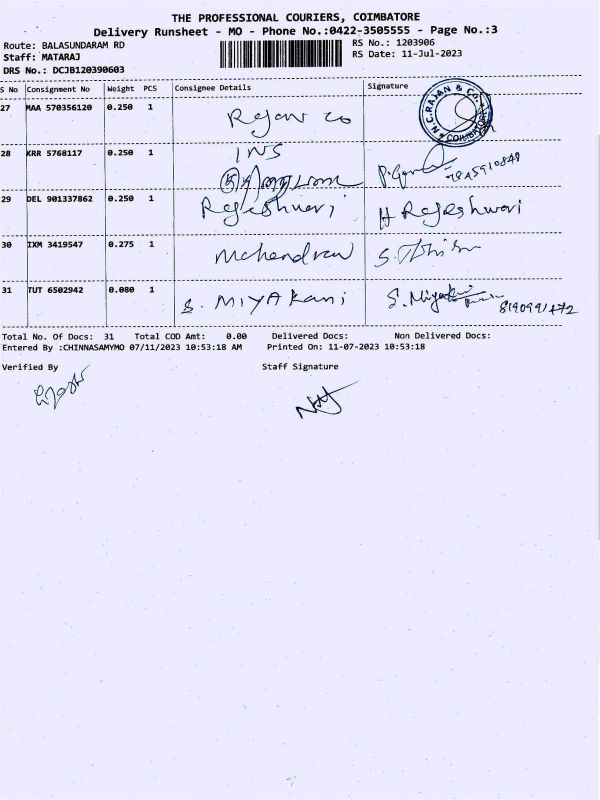 THE PROFESSIONAL COURIERS, COIMBATORE
Delivery Runsheet - MO - Phone No.:0422-3505555 - Page No.:3
Route: BALASUNDARAM RD
RS No.: 1203906
Staff: MATARAJ
RS Date: 11-Jul-2023
DRS No.: DCJB120390603
S No Consignment No Weight PCS Consignee Details Signature
27 MAA 570356120 0.250 1 Rajan co N.C.RAJAN & CO. COIMBATORE
28 KRR 5768117 0.250 1 INS
9845910848
29 DEL 901337862 0.250 1 Rajeshwari H Rajeshwari
30 IXM 3419547 0.275 1 Mahendran
31 TUT 6502942 0.080 1 S. MIYAKani S. Miyakani 8190991472
Total No. Of Docs: 31 Total COD Amt: 0.00 Delivered Docs: Non Delivered Docs:
Entered By :CHINNASAMYMO 07/11/2023 10:53:18 AM Printed On: 11-07-2023 10:53:18
Verified By Staff Signature